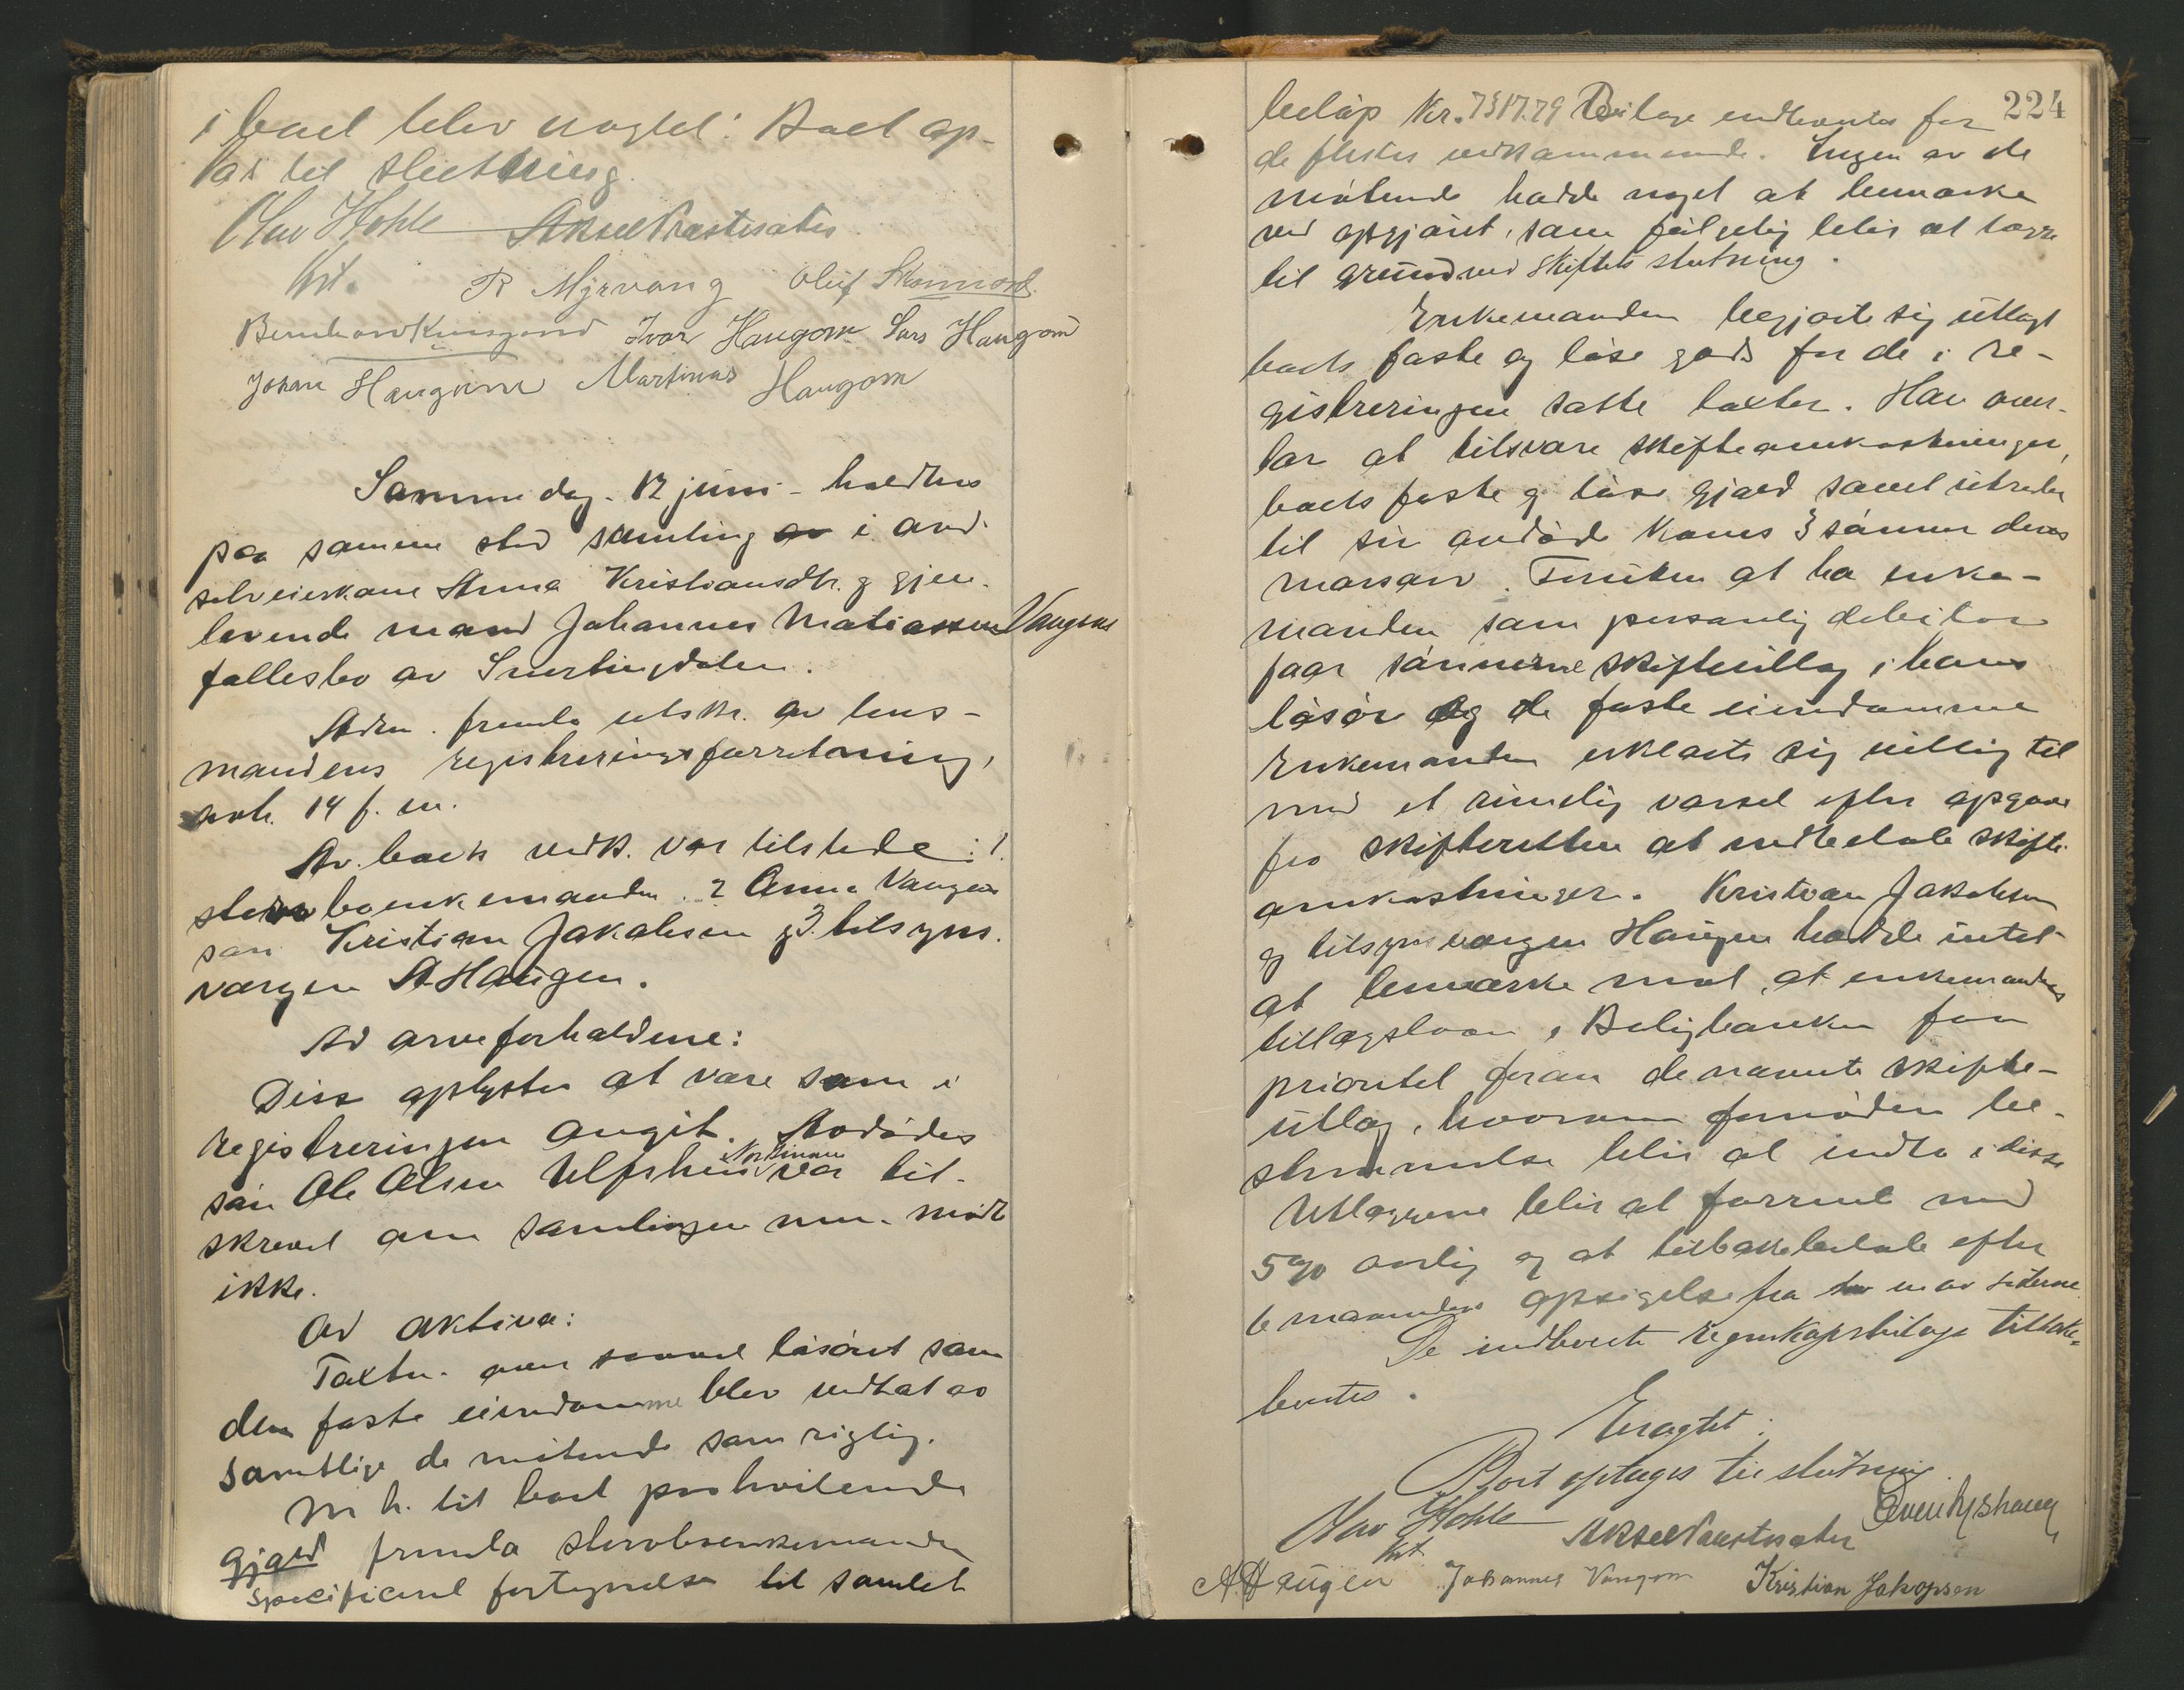 i boet blev nægtet. Boet op-
tas til sluttning.
Olav Hohle Aksel Prestesæter
fot.
R Myrvang Oluf Skonnord
Bernhard Kinsgard Ivar Haugom Lars Haugom
Johan Haugom Martinus Haugom
Samme dag - 12 juni - holdtes
paa samme sted samling av i avd.
selveierkone Anna Kristiansdtr. og gjen-
levende mand Johannes Matiassen Vangens
fællesbo av Snertingdalen.
Adm. fremla utskr. av lens-
mandens registreringsforretning,
avh. 14 f. m.
Av boets vedk. var tilstede: 1.
stervboenkemanden 2 Anna Vangens
søn Kristian Jakobsen og 3. tilsyns-
værgen A Haugen.
Ad arveforholdene:
Diss oplystes at være som i
registreringen angit. Avdødes
søn Ole Olsen Ulfshus Nordinnen var til-
skrevet om samlingen men møtte
ikke.
Ad aktiva:
Taxten over saavel løsøret som
den faste eiendomme blev vedtat av
samtlige de møtende som rigtig.
M. h. til boet paahvilende
gjæld fremla stervboenkemanden
specificeret fortegnelse til samlet
224
beløp Kr. 7317.79 Bilage indhentes for
de flestes vedkommende. Ingen av de
møtende hadde noget at bemærke
ved opgjøret, som følgelig blir at lægge
til grund ved skiftets slutning.
Enkemanden begjærte sig utlagt
boets faste og løse gods for de i re-
gistreringen satte taxter. Han over-
tar at tilsvare skifteomkostninger,
boets faste og løse gjæld samt utreder
til sin avdøde kones 3 sønner deres
morsarv. Foruten at ha enke-
manden som personlig debitor
faar sønnerne skifteutlæg i hans
løsøre og de faste eiendomme
Enkemanden erklærte sig villig til
med et rimelig varsel efter opgave
fra skifteretten at indbetale skifte-
omkostninger. Kristian Jakobsen
og tilsynsværgen Haugen hadde intet
at bemærke mot, at enkemandens
tillægslaan i Boligbanken faar
prioritet foran de nævnte skifte-
utlæg, hvorom fornøden be-
stemmelse blir at indta i disse
Utlæggene blir at forrente med
5 % aarlig og at tilbakebetale efter
6 maaneders opsigelse fra en av siderne
De indhente regnskapsbilage tilbake-
leveres.
Eragtet:
Boet optages til slutning.
Olav Hohle Aksel Prestesæter Even Nyshaug
fot
A. Haugen Johannes Vangom Kristian Jakopsen